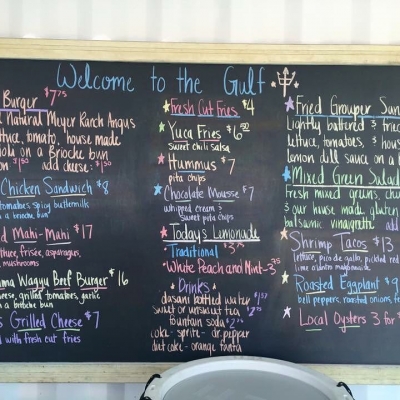 Welcome to the Gulf
Burger $7.75
Natural Meyer Ranch Angus
lettuce, tomato, house made
on a Brioche bun
add cheese: $1.50
Chicken Sandwich $8
tomatoes spicy buttermilk
a brioche bun
Mahi-Mahi $17
lettuce, frisée, asparagus,
mushrooms
Wagyu Beef Burger $16
cheese, grilled tomatoes, garlic
a brioche bun
Grilled Cheese $7
with fresh cut fries
Fresh Cut Fries $4
Yuca Fries $6.50
sweet chili salsa
Hummus $7
pita chips
Chocolate Mousse $7
whipped cream &
sweet pita chips
Today's Lemonade
Traditional $3.75
White Peach and Mint-3.95
Drinks
dasani bottled water
sweet or unsweet tea $2.75
fountain soda $2.75
coke - sprite - dr. pepper
diet coke - orange fanta
Fried Grouper San
Lightly battered & fried
lettuce, tomatoes, & hous
lemon dill sauce on a b
Mixed Green Salad
fresh mixed greens,
& our house made gluten
balsamic vinaigrette add
Shrimp Tacos $13
lettuce, pico de gallo, pickled red
Roasted Eggplant $9
bell peppers, roasted onions,
Local Oysters 3 for $